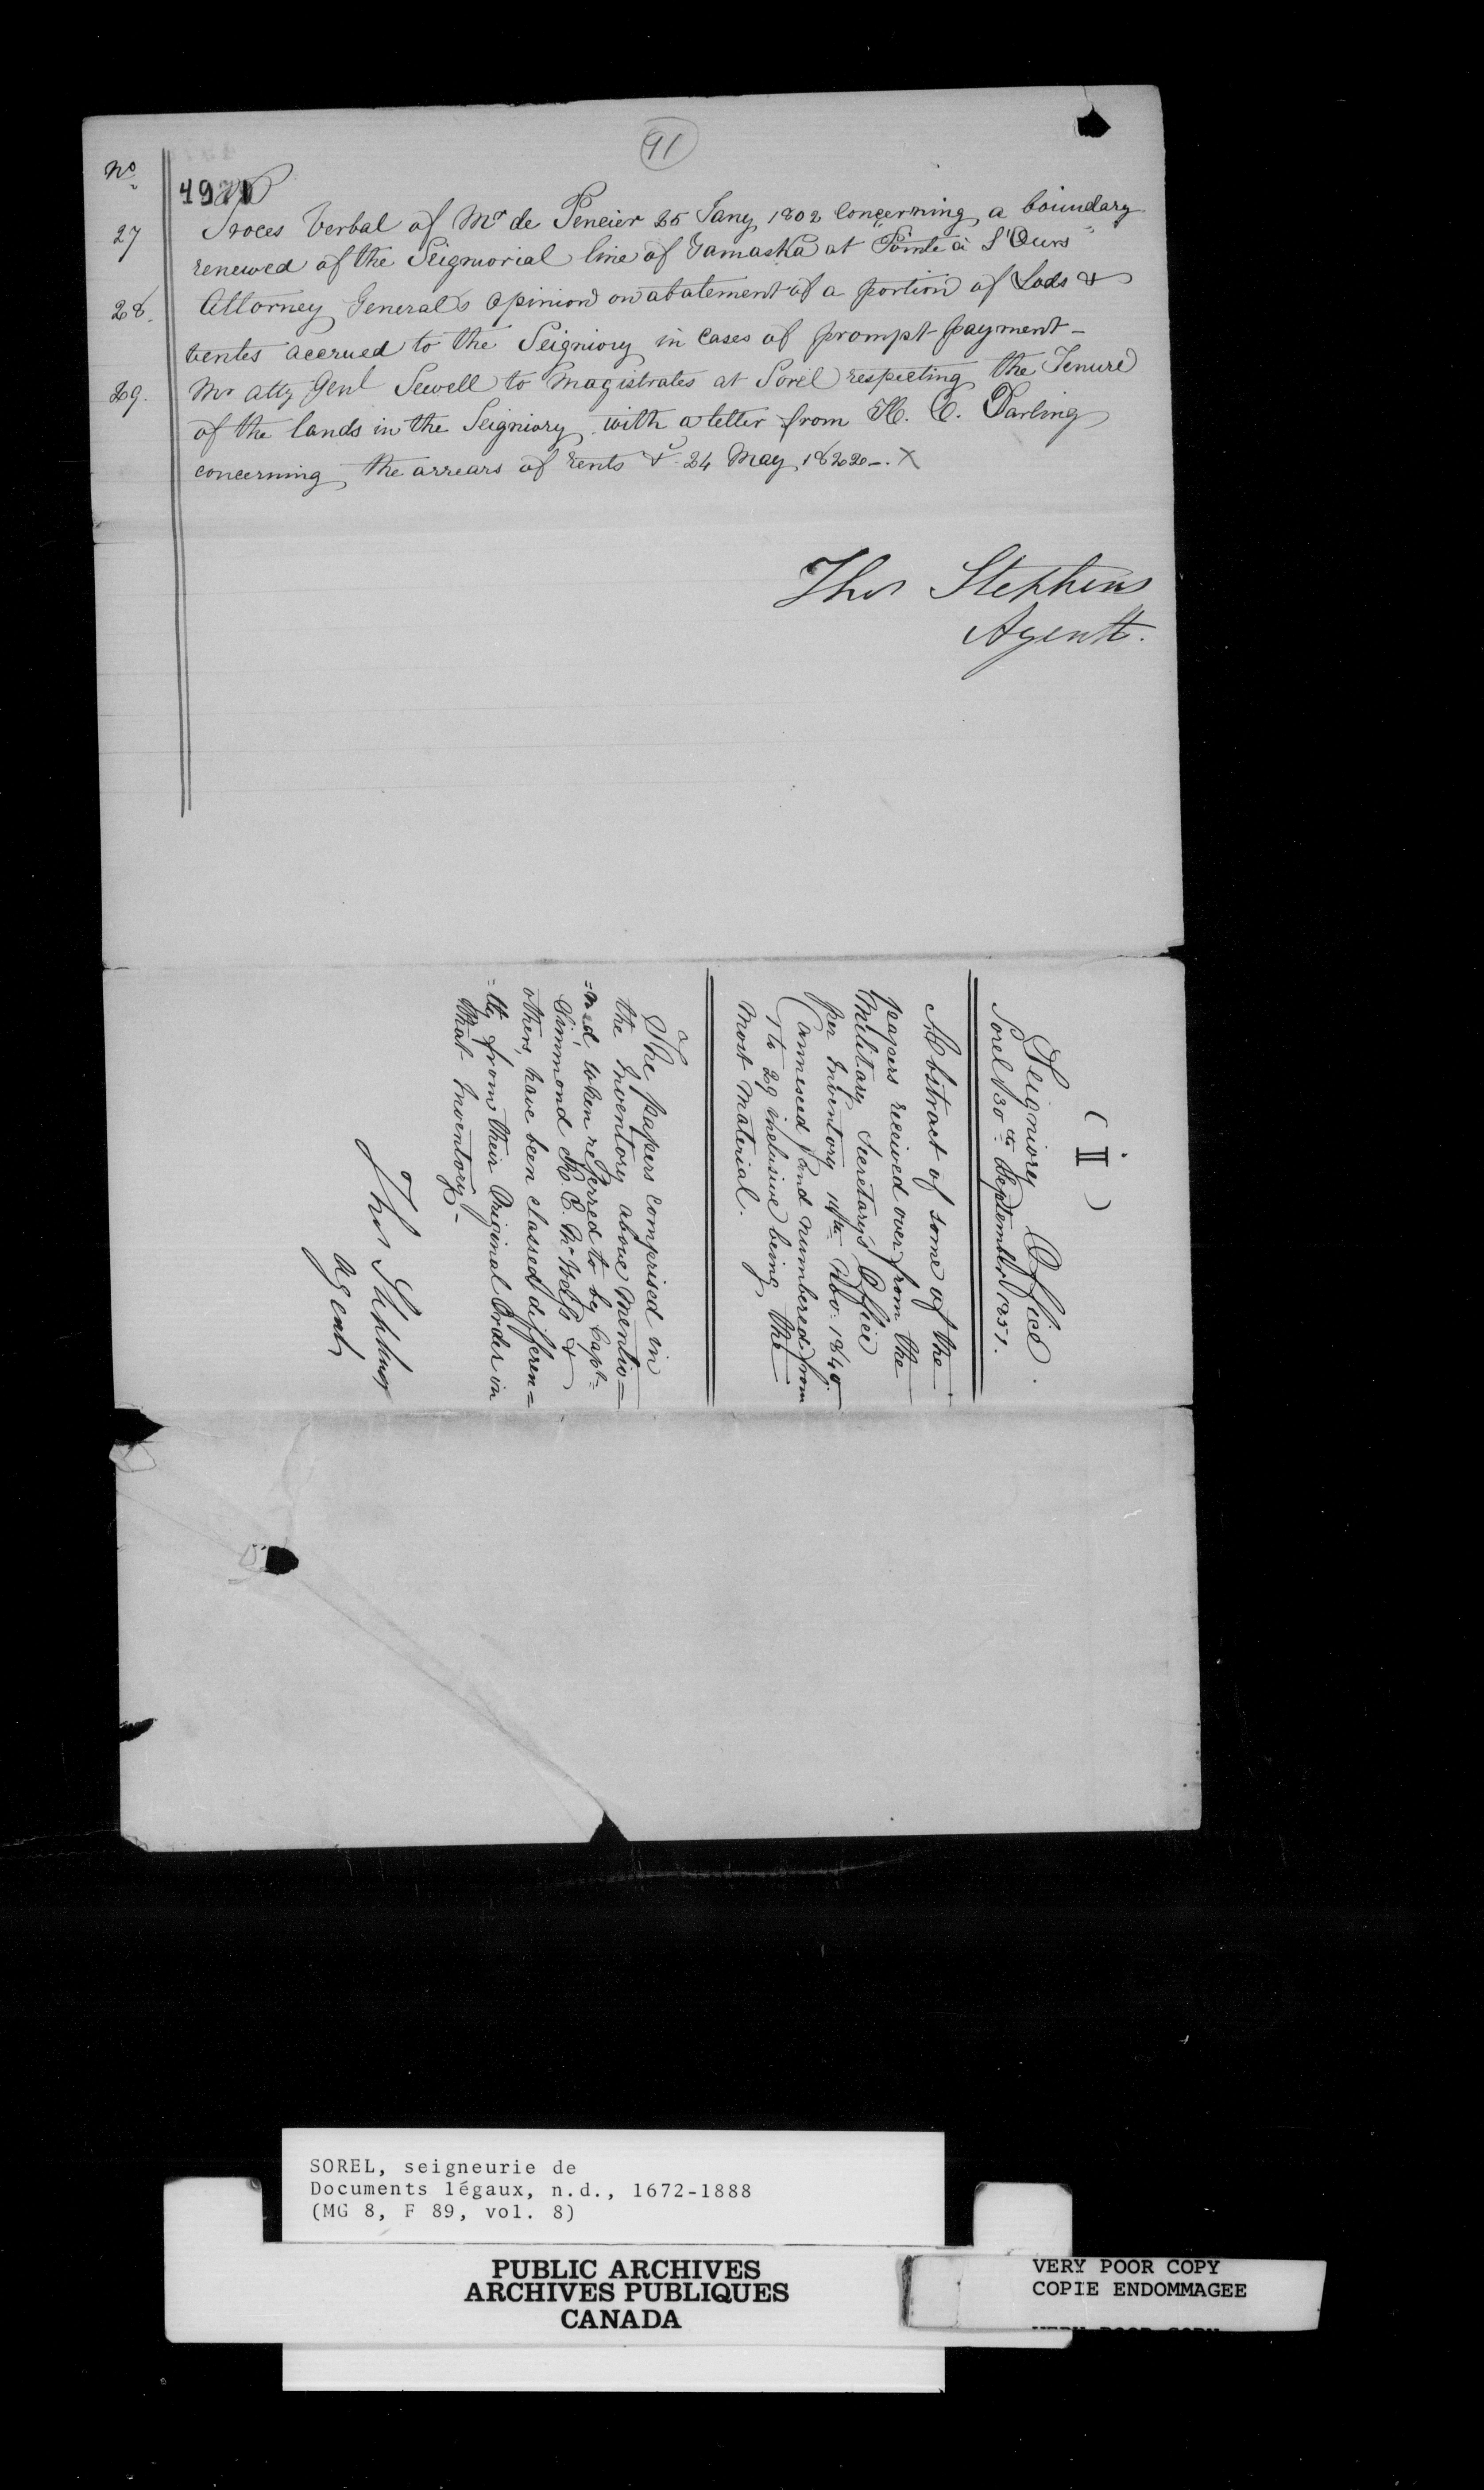 91
No
4971
27 Proces Verbal of Mr de Pencier 25 Jany 1802 Concerning a boundary
renewed of the Seignorial line of Yamaska at "Pointe à L'Ours"
28. Attorney General's Opinion on abatement of a portion of Lods &
ventes accrued to the Seigniory in Cases of prompt payment-
29. Mr Atty Genl Sewell to Magistrates at Sorel respecting the Tenure
of the lands in the Seigniory with a letter from H. C. Darling
concerning the arrears of Rents &c 24 May 1822-. X
Thos Stephens
Agent.
( II )
Seigniory Office.
Sorel 30th September 1851.
Abstract of some of the
papers received over from the
Military Secretary's Office
per Inventory Nov. 1840
(annexed) and numbered from
1 to 29 inclusive being the
Most Material.
The papers comprised in
the Inventory above Mentio=
=ned when referred to by Capt=
Simmond R. E. Mr Wells &
others, have been classed differen=
=tly from their Original Order in
that Inventory-
Thos Stephens
Agent
SOREL, seigneurie de
Documents légaux, n.d., 1672-1888
(MG 8, F 89, vol. 8)
PUBLIC ARCHIVES
ARCHIVES PUBLIQUES
CANADA
VERY POOR COPY
COPIE ENDOMMAGEE
VERY POOR COPY